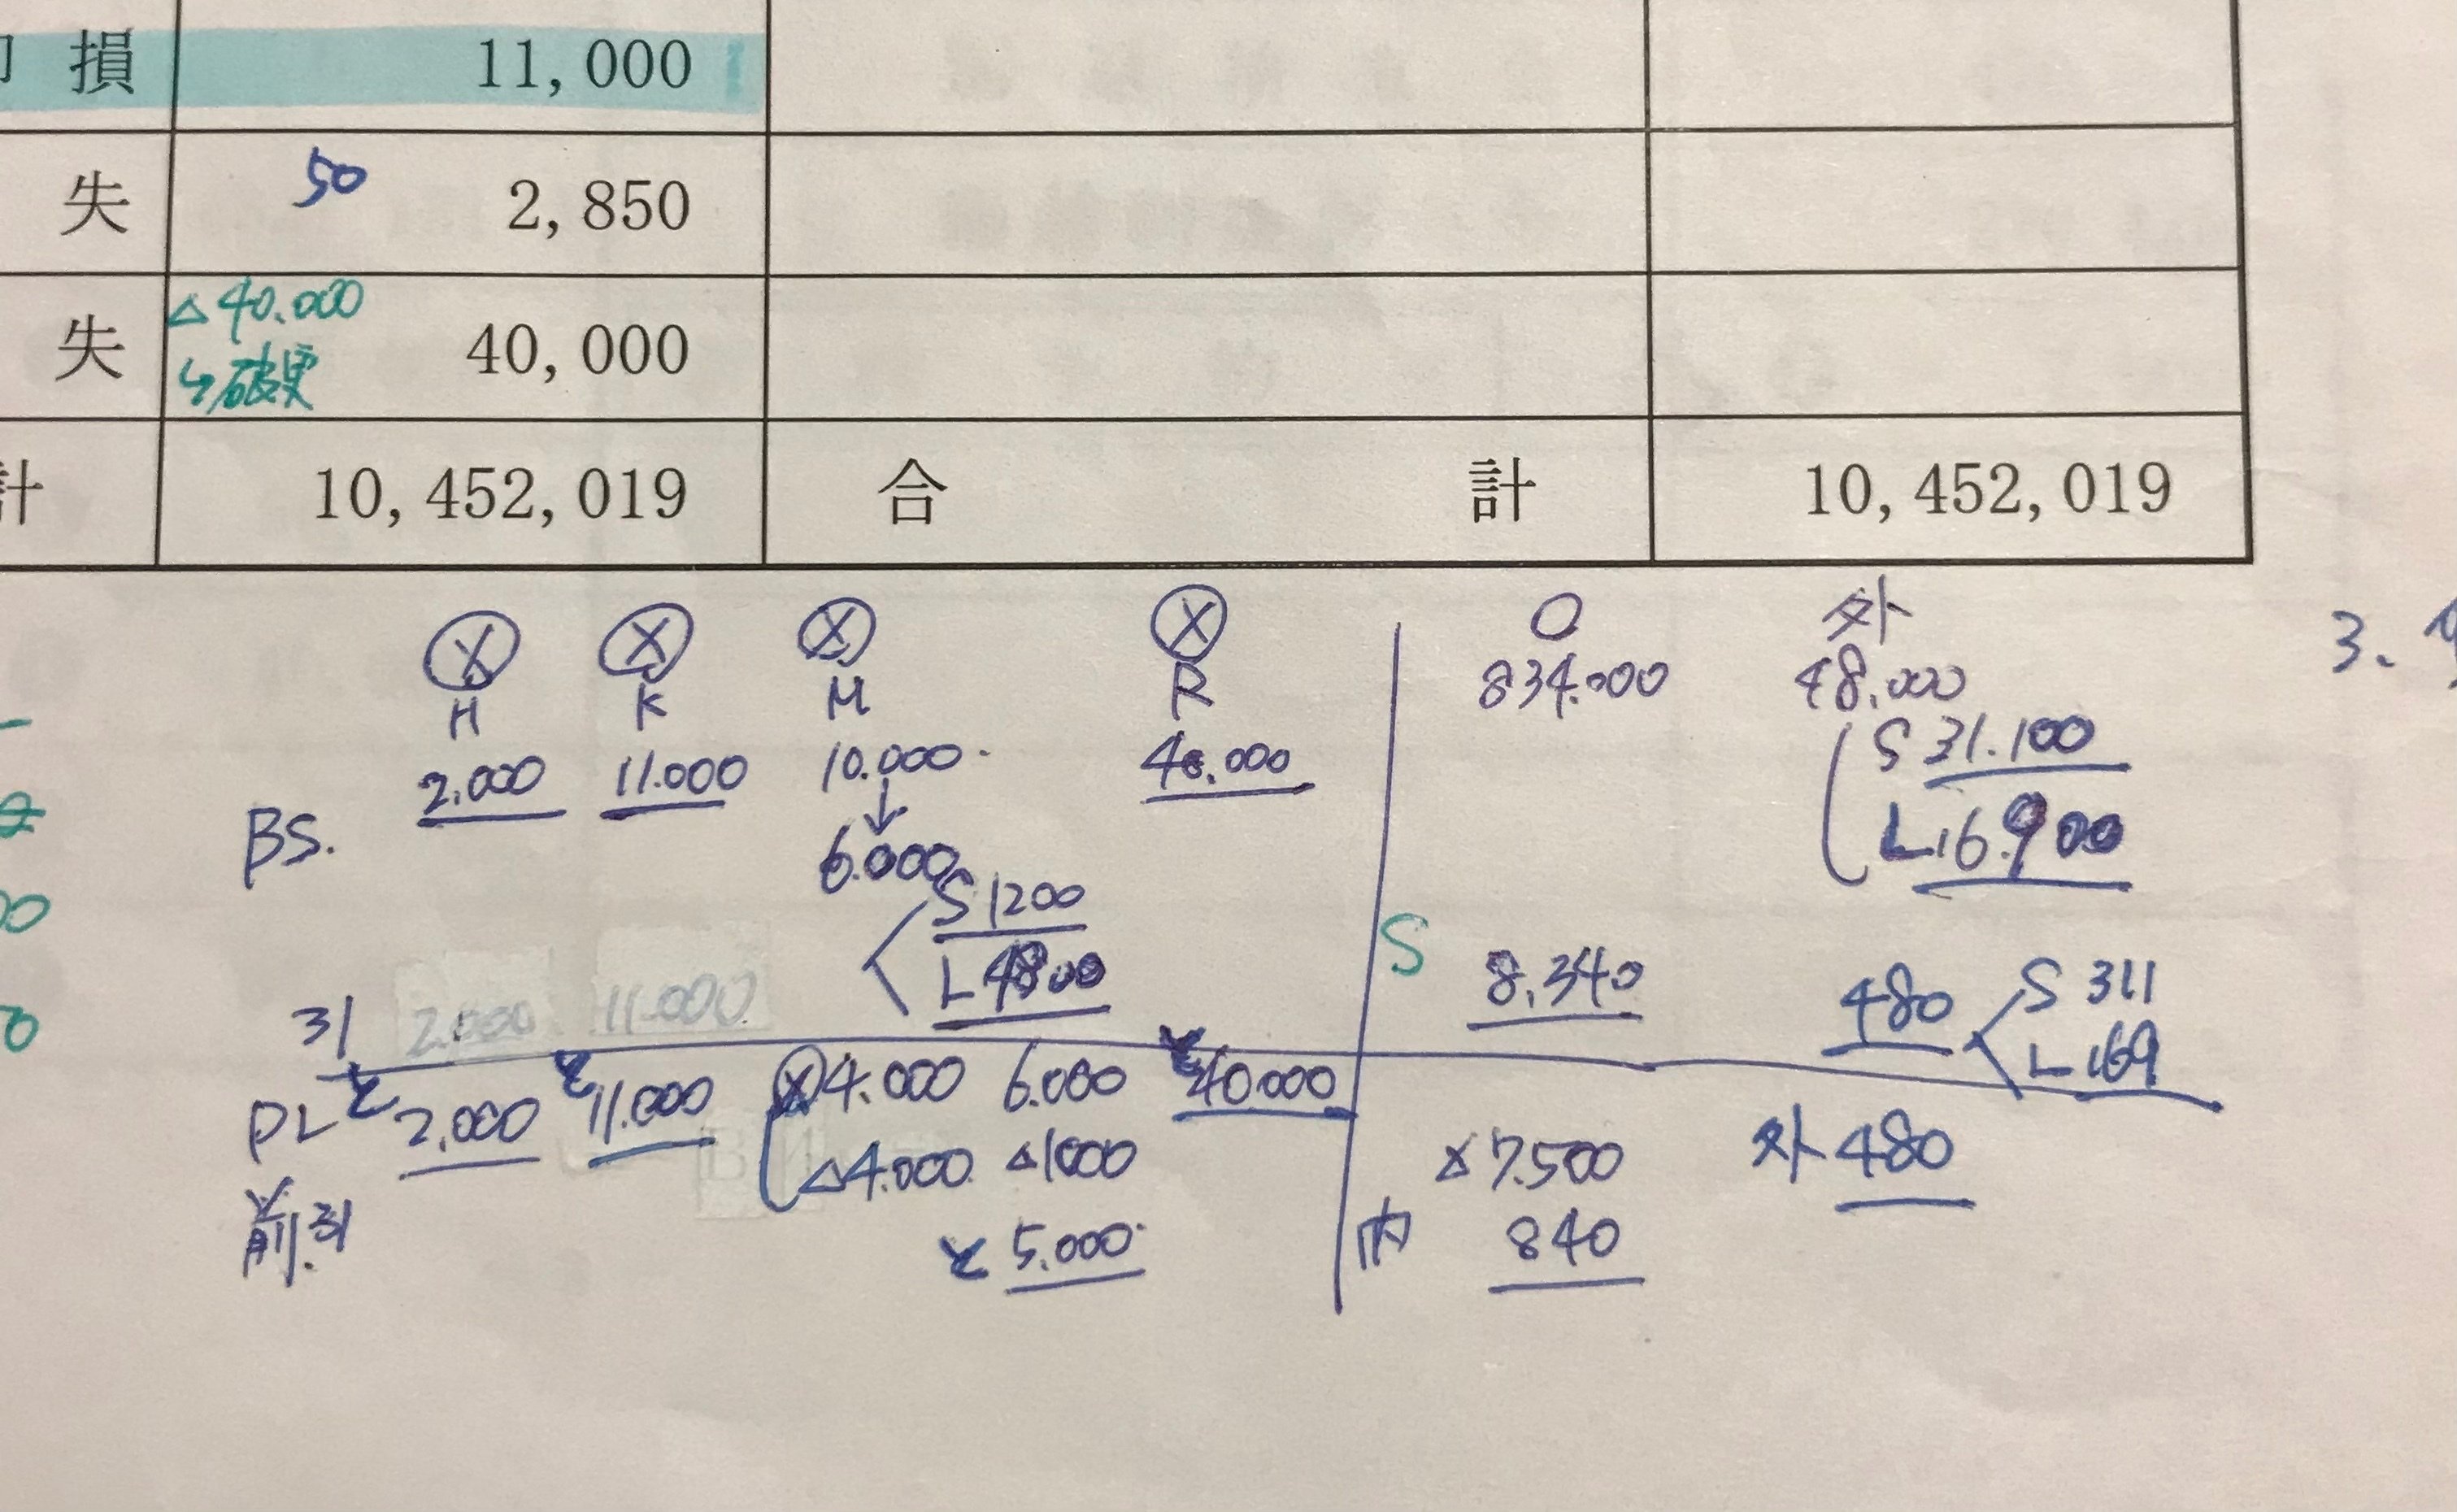 損 11,000
失 50 2,850
△40.000
失 40,000
↳破更
計 10,452,019 合 計 10,452,019
X X X X O 外
H K M R 834.000 48.000
3.
2.000 11.000 10.000 40.000 S 31.100
BS. ↓ L 16.900
6.000
S 1200
S
L 4800 8.340 480 S 311
31 2.000 11.000 L 169
PL 2.000 11.000 X 4.000 6.000 40.000
△4.000 △1000 △7.500 外 480
前.引 5.000 内 840